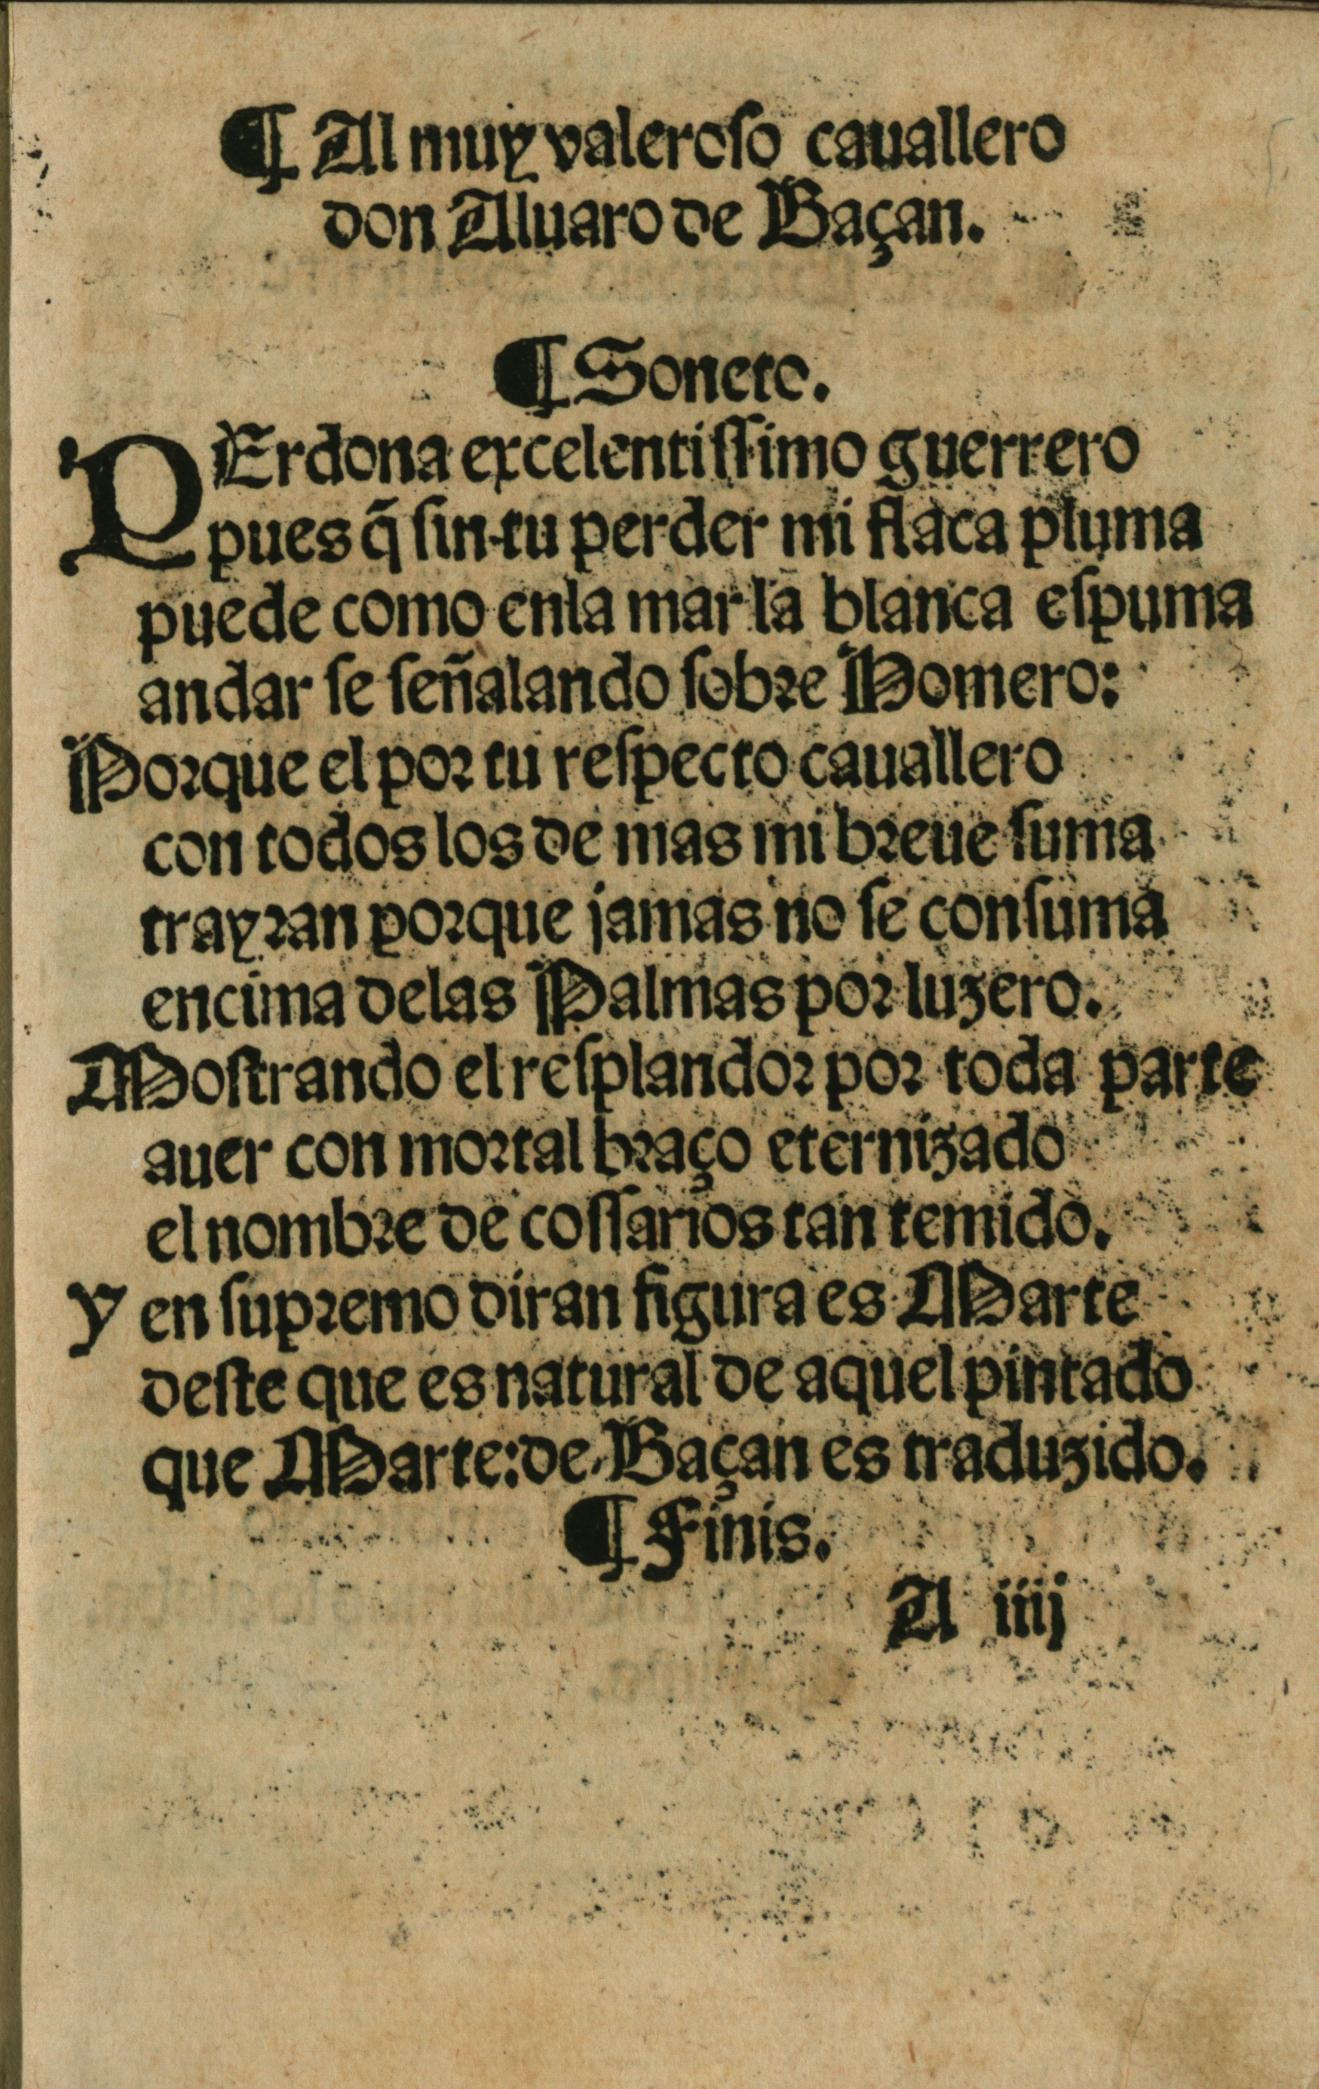 ¶ Al muy valeroso cauallero
don Aluaro de Baçan.
¶ Soneto.
PErdona excelentissimo guerrero
pues q̃ sin tu perder mi flaca pluma
puede como enla mar la blanca espuma
andar se señalando sobre Homero:
Porque el por tu respecto cauallero
con todos los de mas mi breue suma
trayran porque jamas no se consuma
encima delas Palmas por luzero.
Mostrando el resplandor por toda parte
auer con mortal braço eternizado
el nombre de cossarios tan temido.
Y en supremo diran figura es Marte
deste que es natural de aquel pintado
que Marte: de Baçan es traduzido.
¶ Finis.
A iiij